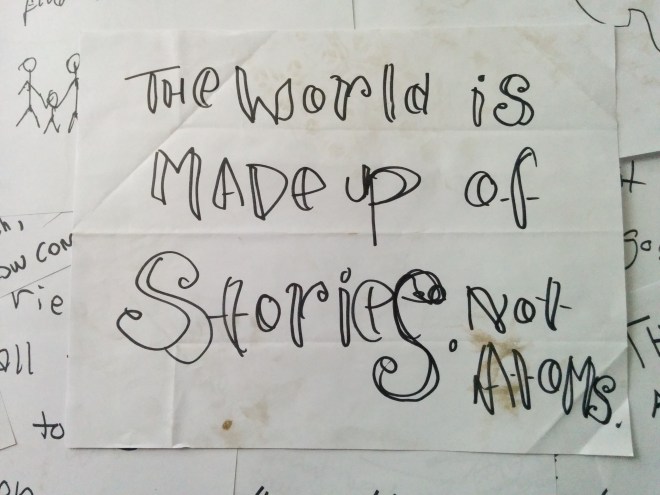 THe World is
MADe up of
Stories. Not
Atoms.
OW CON
rie
all
to